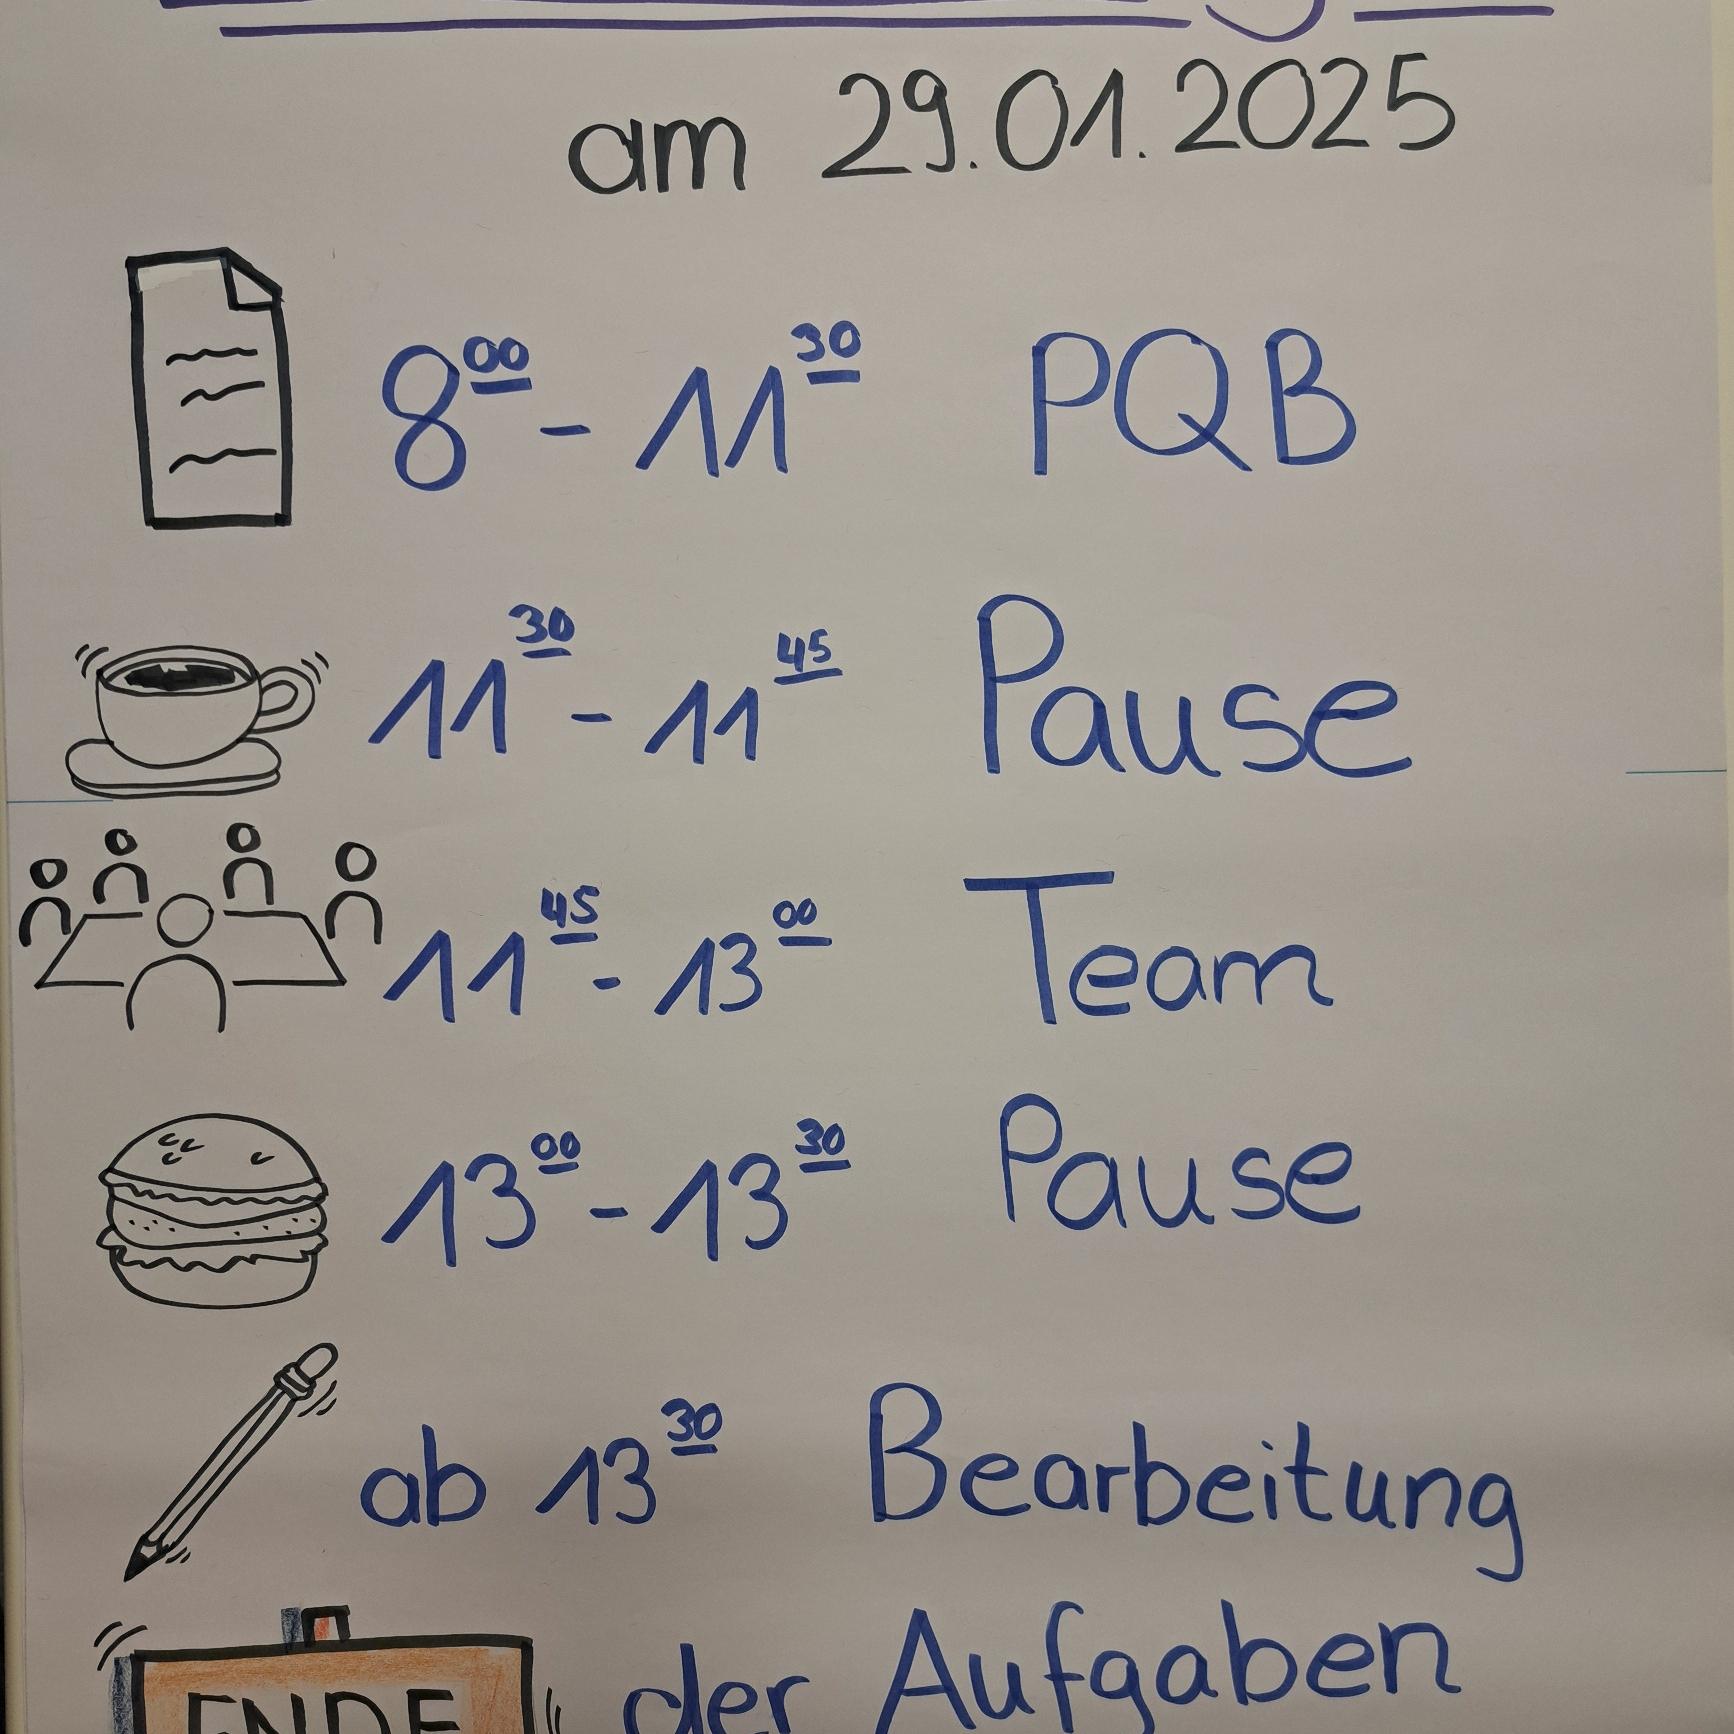 am 29.01.2025
8⁰⁰ - 11³⁰ PQB
11³⁰ - 11⁴⁵ Pause
11⁴⁵ - 13⁰⁰ Team
13⁰⁰ - 13³⁰ Pause
ab 13³⁰ Bearbeitung
der Aufgaben
ENDE